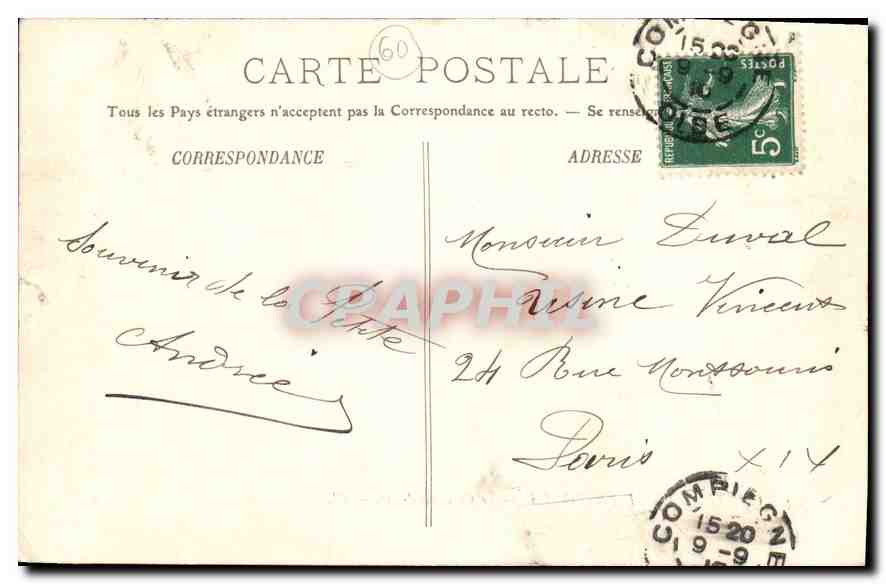 60
CARTE POSTALE
Tous les Pays étrangers n'acceptent pas la Correspondance au recto. — Se renseig
CORRESPONDANCE
ADRESSE
COMPIEGNE
15 20
9 - 9
10
OISE
REPUBLIQUE FRANÇAISE
POSTES
5c
Souvenir de la Petite
Andrée
Monsieur Duval
Usine Vincent
24 Rue Montsouris
Paris XIX
CPAPHIL
COMPIEGNE
15 20
9 - 9
10